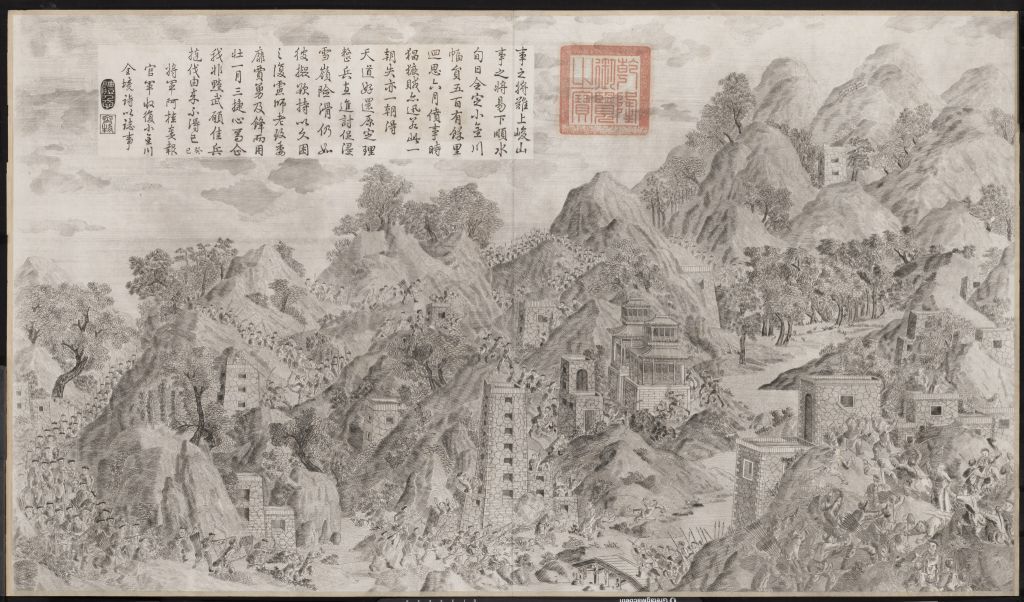 事之將難上峻山
事之將易下順水
旬日全定小金川
幅員五百有餘里
迴思六月僨事時
猖獗賊亦迅若此一
朝失亦一朝得
天道好還原定理
整兵直進討促浸
雪嶺險滑仍如
彼擬欲持以久困
之復慮師老致委
靡賈勇及鋒而用
壯一月三捷心
我非黷武願佳兵
伐由來不得已癸巳
將軍阿桂奏報
官軍收復小金川
全境詩以誌事